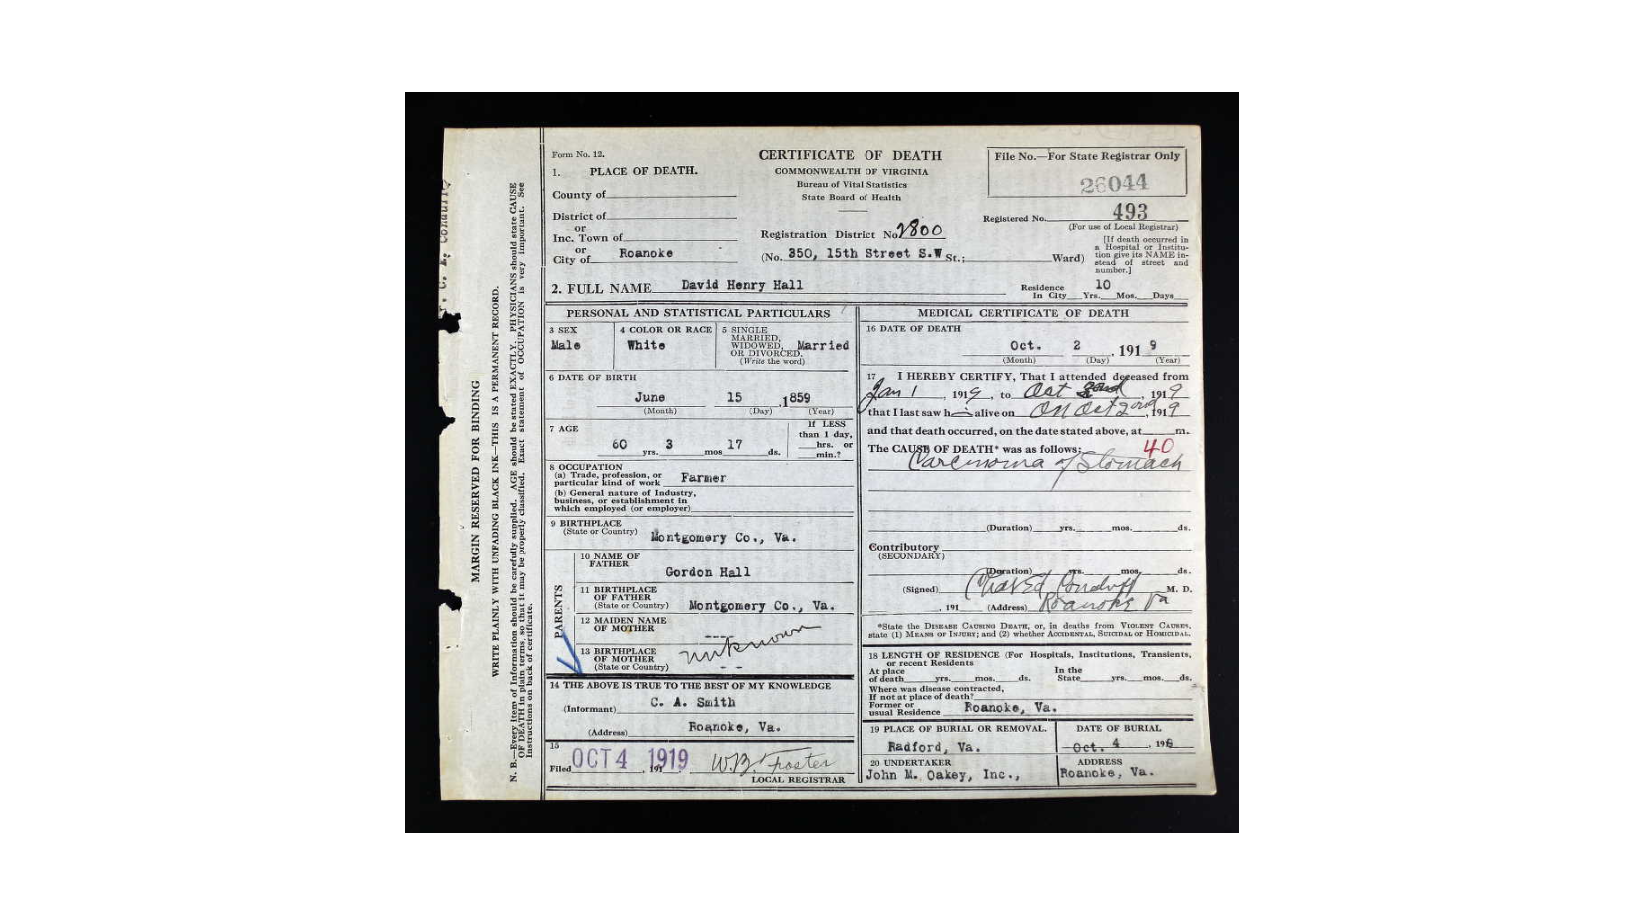 Form No. 12.
CERTIFICATE OF DEATH
COMMONWEALTH OF VIRGINIA
Bureau of Vital Statistics
State Board of Health
File No.—For State Registrar Only
26044
Registered No. 493
(For use of Local Registrar)
1. PLACE OF DEATH.
County of
District of
or
Inc. Town of
or
City of Roanoke
Registration District No. 2800
(No. 350, 15th Street S.W St.; Ward)
[If death occurred in
a Hospital or Institu-
tion give its NAME in-
stead of street and
number.]
2. FULL NAME David Henry Hall
Residence 10
In City Yrs. Mos. Days
PERSONAL AND STATISTICAL PARTICULARS
3 SEX
Male
4 COLOR OR RACE
White
5 SINGLE
MARRIED,
WIDOWED, Married
OR DIVORCED.
(Write the word)
6 DATE OF BIRTH
June 15 ,1859
(Month) (Day) (Year)
7 AGE
60 yrs. 3 mos 17 ds.
If LESS
than 1 day,
hrs. or
min.?
8 OCCUPATION
(a) Trade, profession, or
particular kind of work Farmer
(b) General nature of Industry,
business, or establishment in
which employed (or employer)
9 BIRTHPLACE
(State or Country) Montgomery Co., Va.
PARENTS
10 NAME OF
FATHER
Gordon Hall
11 BIRTHPLACE
OF FATHER
(State or Country) Montgomery Co., Va.
12 MAIDEN NAME
OF MOTHER ---
unknown
13 BIRTHPLACE
OF MOTHER
(State or Country) - -
14 THE ABOVE IS TRUE TO THE BEST OF MY KNOWLEDGE
(Informant) C. A. Smith
(Address) Roanoke, Va.
15
Filed OCT 4 1919 , 191 W.B. Foster
LOCAL REGISTRAR
MEDICAL CERTIFICATE OF DEATH
16 DATE OF DEATH
Oct. 2 , 191 9
(Month) (Day) (Year)
17 I HEREBY CERTIFY, That I attended deceased from
Jan 1 , 1919, to Oct 2nd , 1919
that I last saw h alive on On Oct 2nd , 1919
and that death occurred, on the date stated above, at m.
The CAUSE OF DEATH* was as follows: 40
Carcinoma of Stomach
(Duration) yrs. mos. ds.
Contributory
(SECONDARY)
(Duration) yrs. mos. ds.
(Signed) M. D.
, 191 (Address) Roanoke Va
*State the DISEASE CAUSING DEATH, or, in deaths from VIOLENT CAUSES,
state (1) MEANS OF INJURY; and (2) whether ACCIDENTAL, SUICIDAL OR HOMICIDAL.
18 LENGTH OF RESIDENCE (For Hospitals, Institutions, Transients,
or recent Residents
At place
of death yrs. mos. ds.
In the
State yrs. mos. ds.
Where was disease contracted,
If not at place of death?
Former or
usual Residence Roanoke, Va.
19 PLACE OF BURIAL OR REMOVAL.
Radford, Va.
DATE OF BURIAL
Oct. 4 , 1919
20 UNDERTAKER
John M. Oakey, Inc.,
ADDRESS
Roanoke, Va.
MARGIN RESERVED FOR BINDING
WRITE PLAINLY WITH UNFADING BLACK INK—THIS IS A PERMANENT RECORD.
N. B.—Every item of Information should be carefully supplied. AGE should be stated EXACTLY. PHYSICIANS should state CAUSE
OF DEATH in plain terms, so that it may be properly classified. Exact statement of OCCUPATION is very important. See
Instructions on back of certificate.